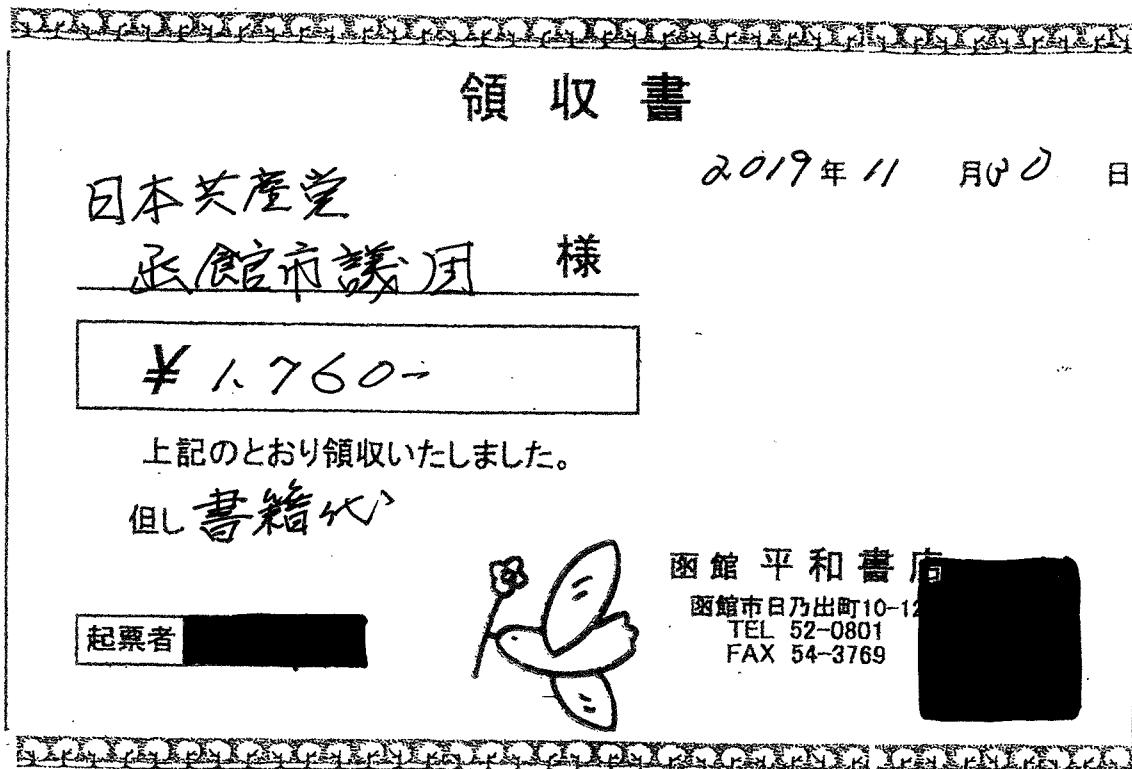 領収書
2019年11月30日
日本共産党
函館市議団 様
¥1,760-
上記のとおり領収いたしました。
但し 書籍代
函館 平和書店
函館市日乃出町10-12
TEL 52-0801
FAX 54-3769
起票者